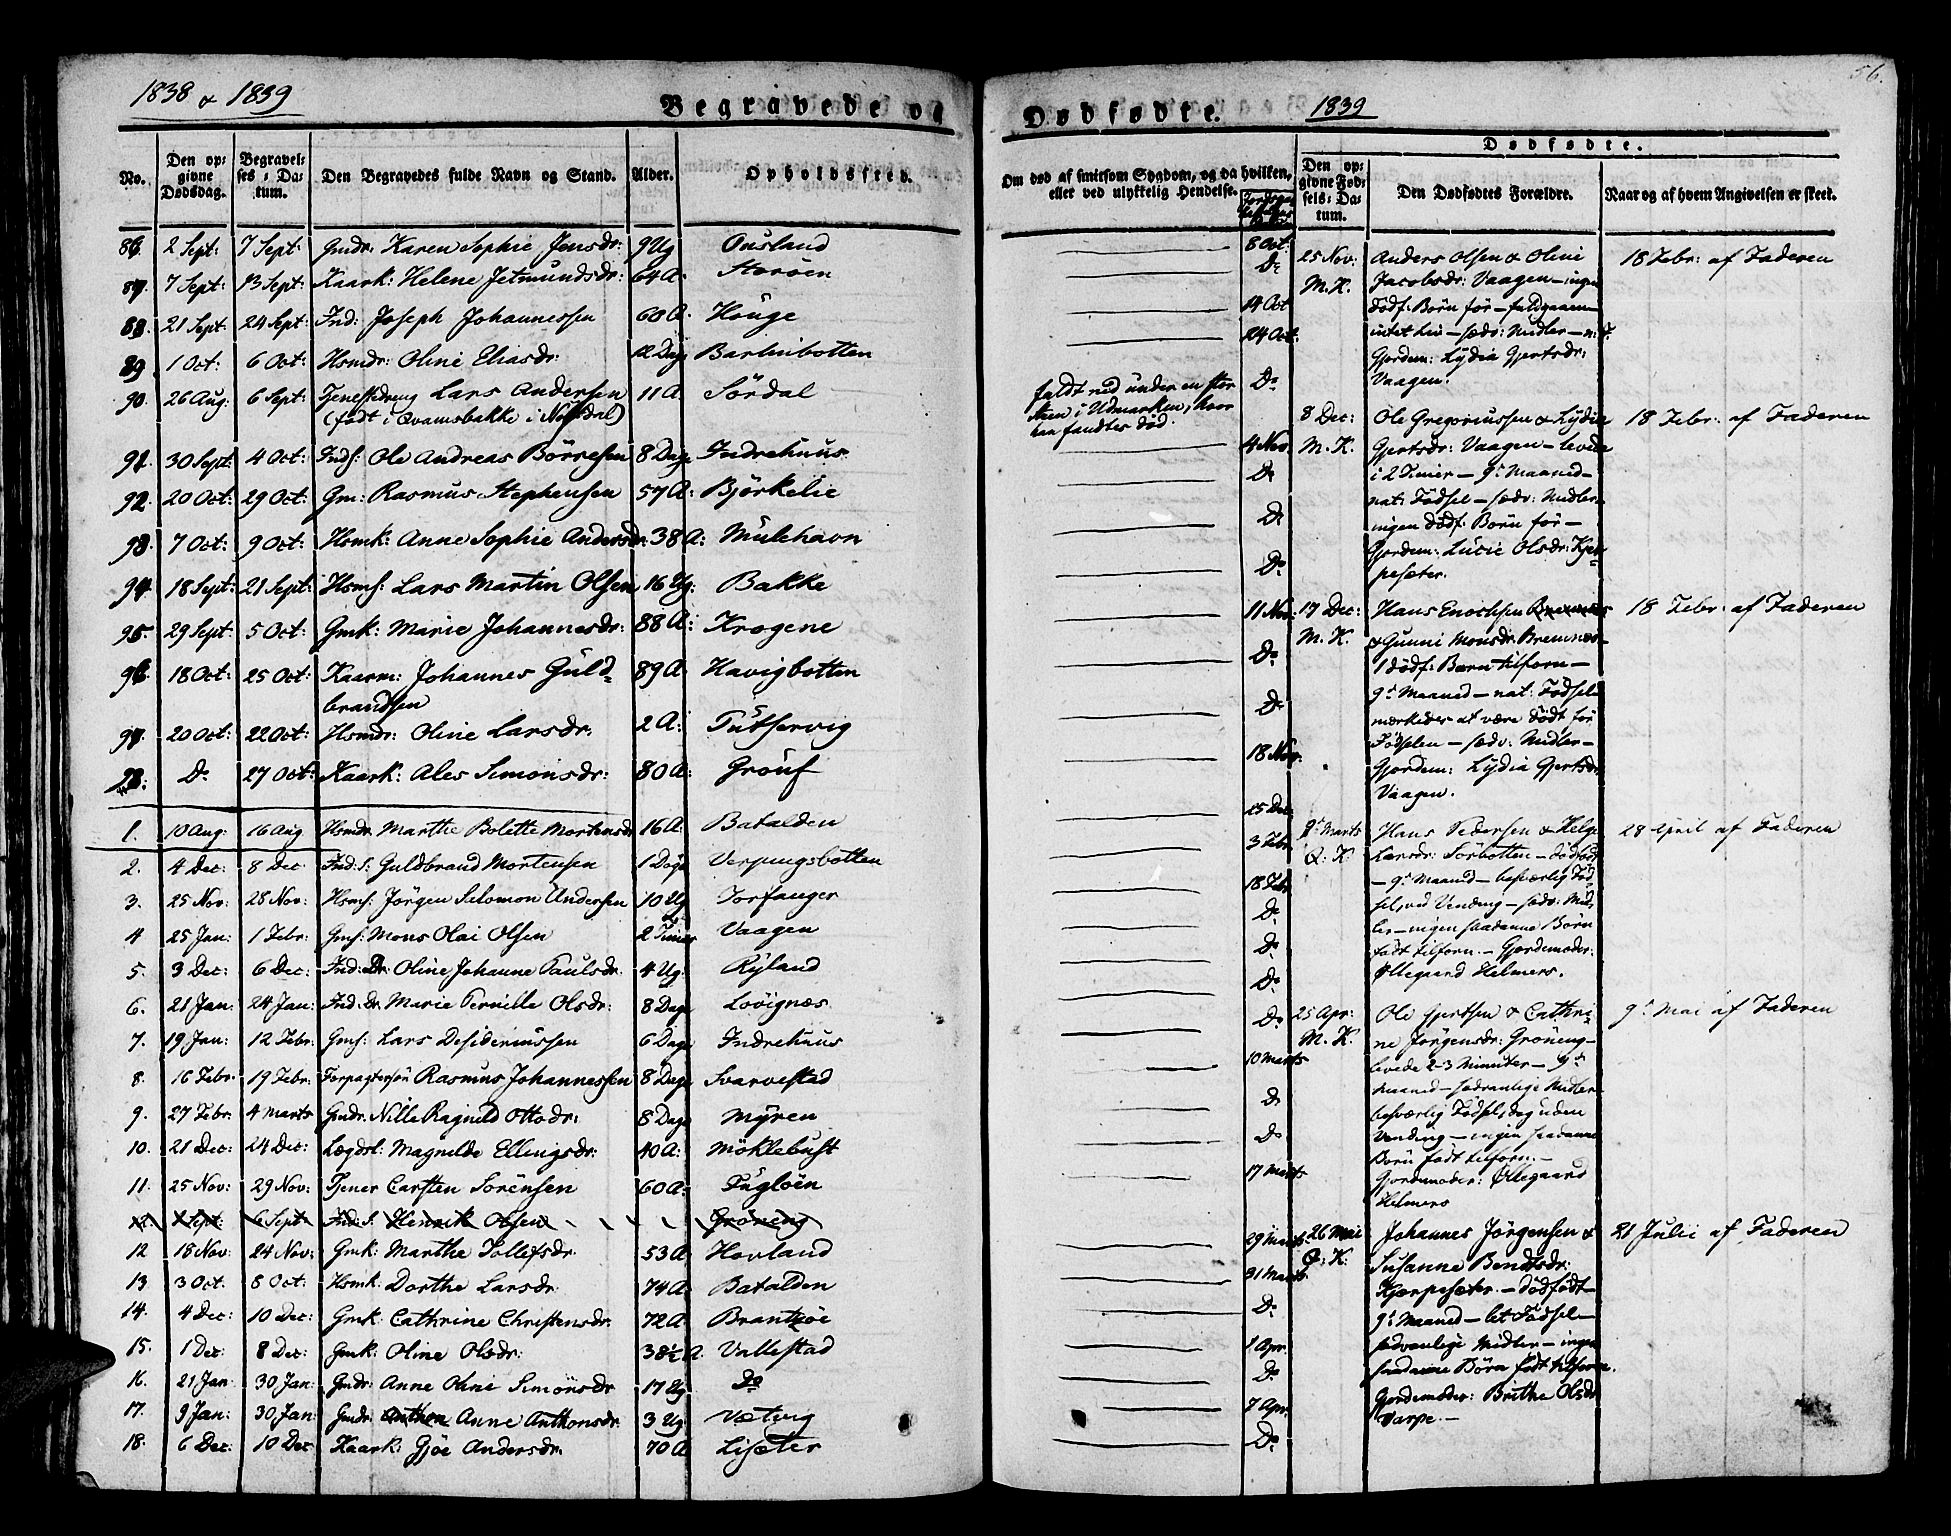 1838 & 1839
Begravede og
No.
Den op-
givne
Dødsdag.
Begravel-
ses-Da-
tum.
Den Begravedes fulde Navn og Stand.
Alder.
Opholdssted.
86. 2 Sept: 7 Sept: Gmdr: Karen Sophie Jonsdr: 9 Ug Ousland
87. 7 Sept: 13 Sept: Kaark: Helene Jetmundsdr: 64 A: Storöen
88. 21 Sept: 24 Sept: Ind: Joseph Johannessen 60 A. Houge
89. 1 Oct: 6 Oct: Hsmdr: Oline Eliasdr: 12 Dag Barlinbotten
90. 26 Aug: 6 Sept: Tjenestdreng Lars Andersen 11 A. Sördal
(født i Qvamsbakke i Nafsdal)
91. 30 Sept: 4 Oct: Inds: Ole Andreas Börresen 8 Dage Indrehuus
92. 20 Oct: 29 Oct: Gm: Rasmus Stephensen 57 A: Björkelie
93. 7 Oct: 9 Oct: Hsmk: Anne Sophie Andersdr: 38 A: Mulehavn
94. 18 Sept: 21 Sept: Hsms: Lars Martin Olsen 16 Ug: Bakke
95. 29 Sept 5 Oct: Gmk: Marie Johannesdr: 88 A: Krogene
96. 18 Oct: 25 Oct: Kaarm: Johannes Guld-
brandsen 89 A: Havigbotten
97. 20 Oct: 22 Oct: Hsmdr: Oline Larsdr: 2 A: Tutservig
98. Do 27 Oct: Kaark: Ales Simonsdr: 80 A: Grouf
1. 10 Aug: 16 Aug Hsmdr. Marthe Bolette Mortensdr 16 A: Batalden
2. 4 Dec: 8 Dec Ind. S: Guldbrand Mortensen 1 Dage Verpingsbotten
3. 25 Nov: 28 Nov: Hsms: Jörgen Salomon Andersen 10 Ug Torfanger
4 25 Jan: 1 Febr: Gms: Mons Olai Olsen 2 Timer Vaagen
5. 3 Dec: 6 Dec: Ind: Dr: Oline Johanne Paulsdr: 4 Ug: Ryland
6. 21 Jan: 24 Jan: Ind: dr: Marie Pernille Olsdr: 8 Dage Lovignæs
7. 19 Jan: 12 Febr: Gms: Lars Desideriussen 6 Dage Indrehuus
8. 16 Febr: 19 Febr: Forpagtersön Rasmus Johannessen 8 Dage Svarvestad
9. 27 Febr: 4 Marts Gmdr: Nille Ragnild Ottodr: 8 Dage Myren
10. 21 Dec: 24 Dec: Lægdsl: Magnilde Ellingsdr: 40 A: Möklebust
11. 25 Nov: 29 Nov: Tjener Carsten Sörensen 60 A: Fugløen
12. 2 Sept: 6 Sept: Ind: S. Henrik Olsen Gröneng
12 18 Nov: 24 Nov: Gmk: Marthe Tollefsdr. 53 A: Hovland
13 3 Oct: 8 Oct: Hsmk: Dorthe Larsdr: 74 A: Batalden
14. 4 Dec: 10 Dec: Gmk: Cathrine Christensdr: 72 A: Brantzöe
15. 1 Dec: 8 Dec: Gmk: Oline Olsdr: 38½ A. Vallestad
16. 21 Jan 30 Jan: Gmdr: Anne Oline Simonsdr 17 Ug Do
17. 9 Jan: 30 Jan: Gmdr: Anthon Anne Anthonsdr. 3 Ug Vætvig
18. 6 Dec: 10 Dec Kaark: Gjöe Andersdr. 70 A Lisæter
56.
Dødfødte.
1839
Om død af smitsom Sygdom, og da hvilken,
eller ved ulykkelig Hendelse.
Dødfødte.
Den op-
givne Fød-
sels-Da-
tum.
Den Dødfødtes Forældre.
Naar og af hvem Angivelsen er skeet.
8 Oct:
Do
14 Oct
24 Oct:
faldt ned under en stor
Steen i Udmarken, hvor
han fandtes död.
Do
4 Nov
Do
Do
Do
11 Nov:
Do
Do
18 Nov:
25 Dec:
3 Febr:
18 Febr
Do
Do
Do
Do
10 Marts
Do
Do
17 Marts
29 Marts
31 Marts
Do
1 Apr.
Do
7 Apr.
Do
25 Nov:
M. K.
Anders Olsen & Oline
Jacobsdr: Vaagen – ingen
dödf: Börn för –
intet Liv – sædv: Midler –
Gjordem: Lydia Gjertsdr:
Vaagen.
18 Febr: af Faderen
8 Dec:
M. K.
Ole Gregoriussen & Lydia
Gjertsdr: Vaagen – levede
i 2 Timer – 9de Maaned –
nat: Födsel – sædv: Midler –
ingen dödf: Börn för –
Gjordem: Lucie Olsdr: Kjær-
pesæter.
18 Febr: af Faderen
17 Dec:
M. K.
Hans Enochsen Bremnæs
& Gunni Monsdr: Bremnæs –
1 dödf: Barn tilforn –
9de Maaned – nat: Födsel
mærkedes at være dödt för
Födselen – sædv: Midler –
Gjordem: Lydia Gjertsdr
Vaagen.
18 Febr: af Faderen
8de Marts
Q: K.
Hans Pedersen & Helge
Larsdr: Sörbotten – dödfödt
– 9de Maaned – besværlig Föd-
sel, ved Vending – sædv: Mid-
ler – ingen saadanne Börn
född tilforn. – Gjordemoder:
Øllegaard Helmers.
28 April af Faderen
25 Apr:
M. K.
Ole Gjertsen & Cathri-
ne Jörgensdr: Gröneng –
levede 2-3 Minuter – 9de
Maaned – sædvanlige Midler –
besværlig Födsel, dog uden
Vending – ingen saadanne
Börn född tilforn. –
Gjordemoder: Øllegaard
Helmers
9de Mai af Faderen
26 Mai
Q: K.
Johannes Jörgensen &
Susanne Bendtsdr:
Kjærpesæter. – dödfödt –
9de Maaned – let Födsel –
sædvanlige Midler – ingen
saadanne Börn född tilforn.
Gjordemoder: Brithe Olsdr
Varpe. –
21 Julii af Faderen